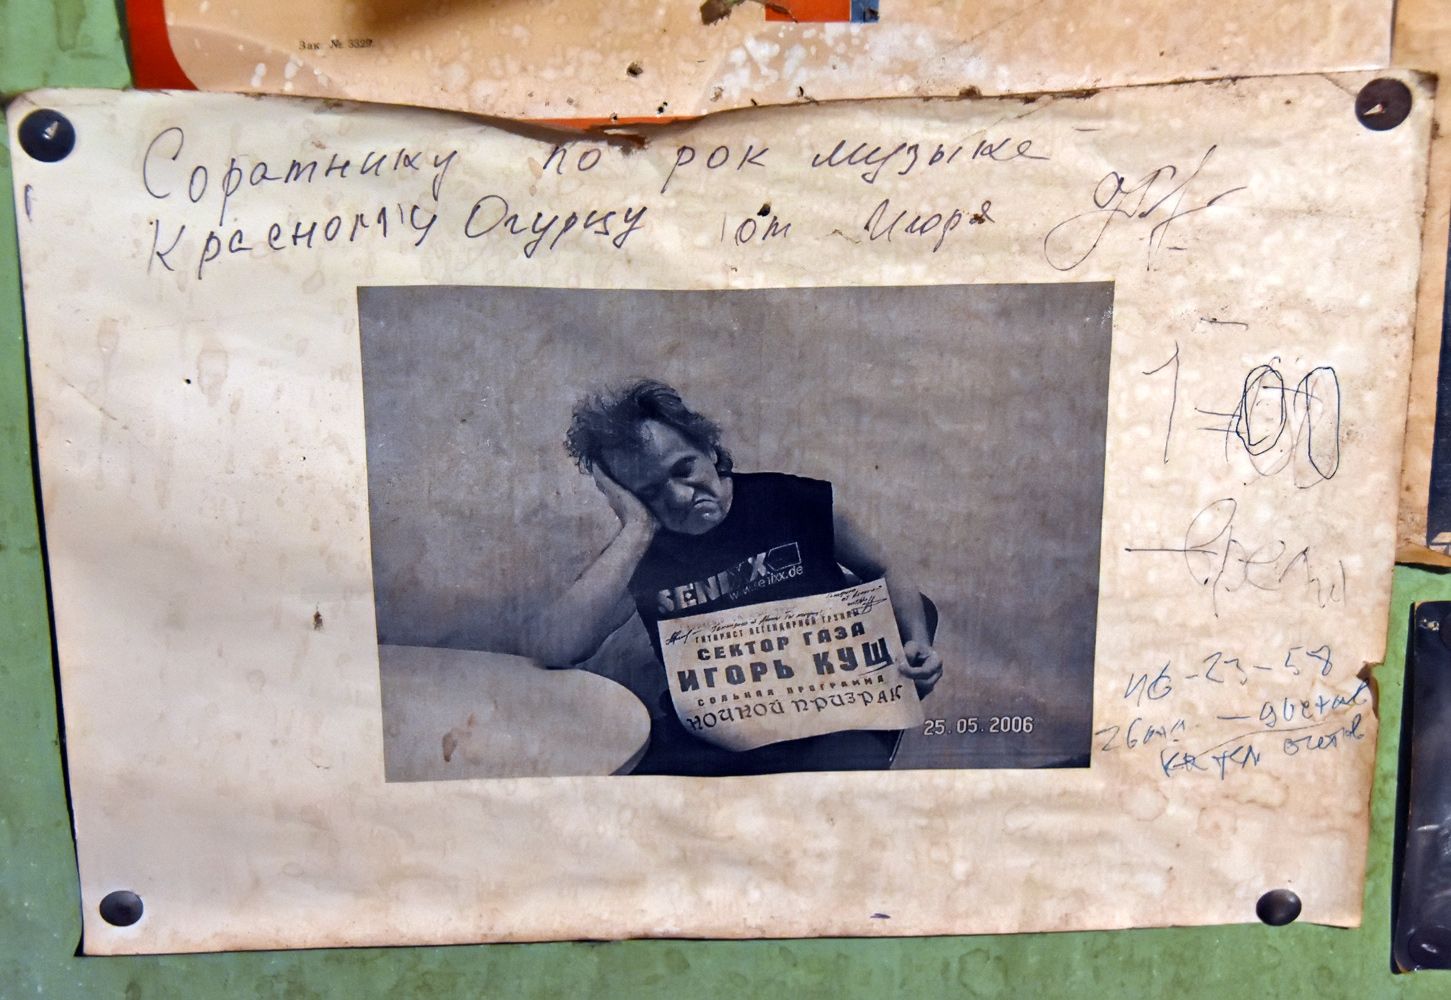 Зак. № 3329.
Соратнику по рок музыке
Красному Огурцу от Игоря
1-00
время
SENIXX
ГИТАРИСТ ЛЕГЕНДАРНОЙ ГРУППЫ
СЕКТОР ГАЗА
ИГОРЬ КУЩ
СОЛЬНАЯ ПРОГРАММА
НОЧНОЙ ПРИЗРАК
25.05.2006
-23-58